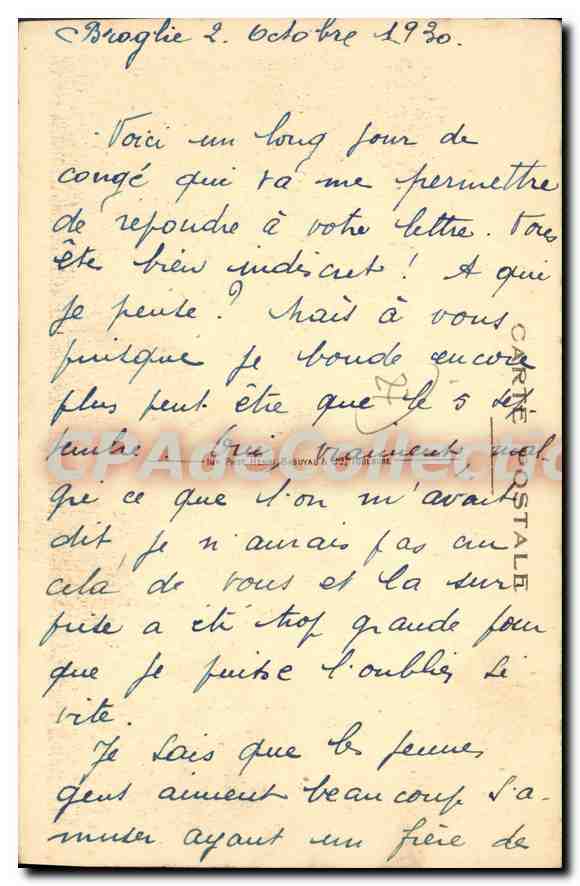 Broglie 2. Octobre 1930.
Voici un long jour de
congé qui va me permettre
de répondre à votre lettre. Vous
êtes bien indiscret! A qui
je pense? Mais à vous
puisque je boude encore
plus peut être que le 5 sep
tembre. Oui, vraiment, mal
gré ce que l'on m'avait
dit, je n'aurais pas cru
celà de vous et la sur
prise a été trop grande pour
que je puisse l'oublier si
vite.
Je sais que les jeunes
gens aiment beaucoup s'a-
muser ayant un frère de
7
CARTE POSTALE
CPAdeCollection